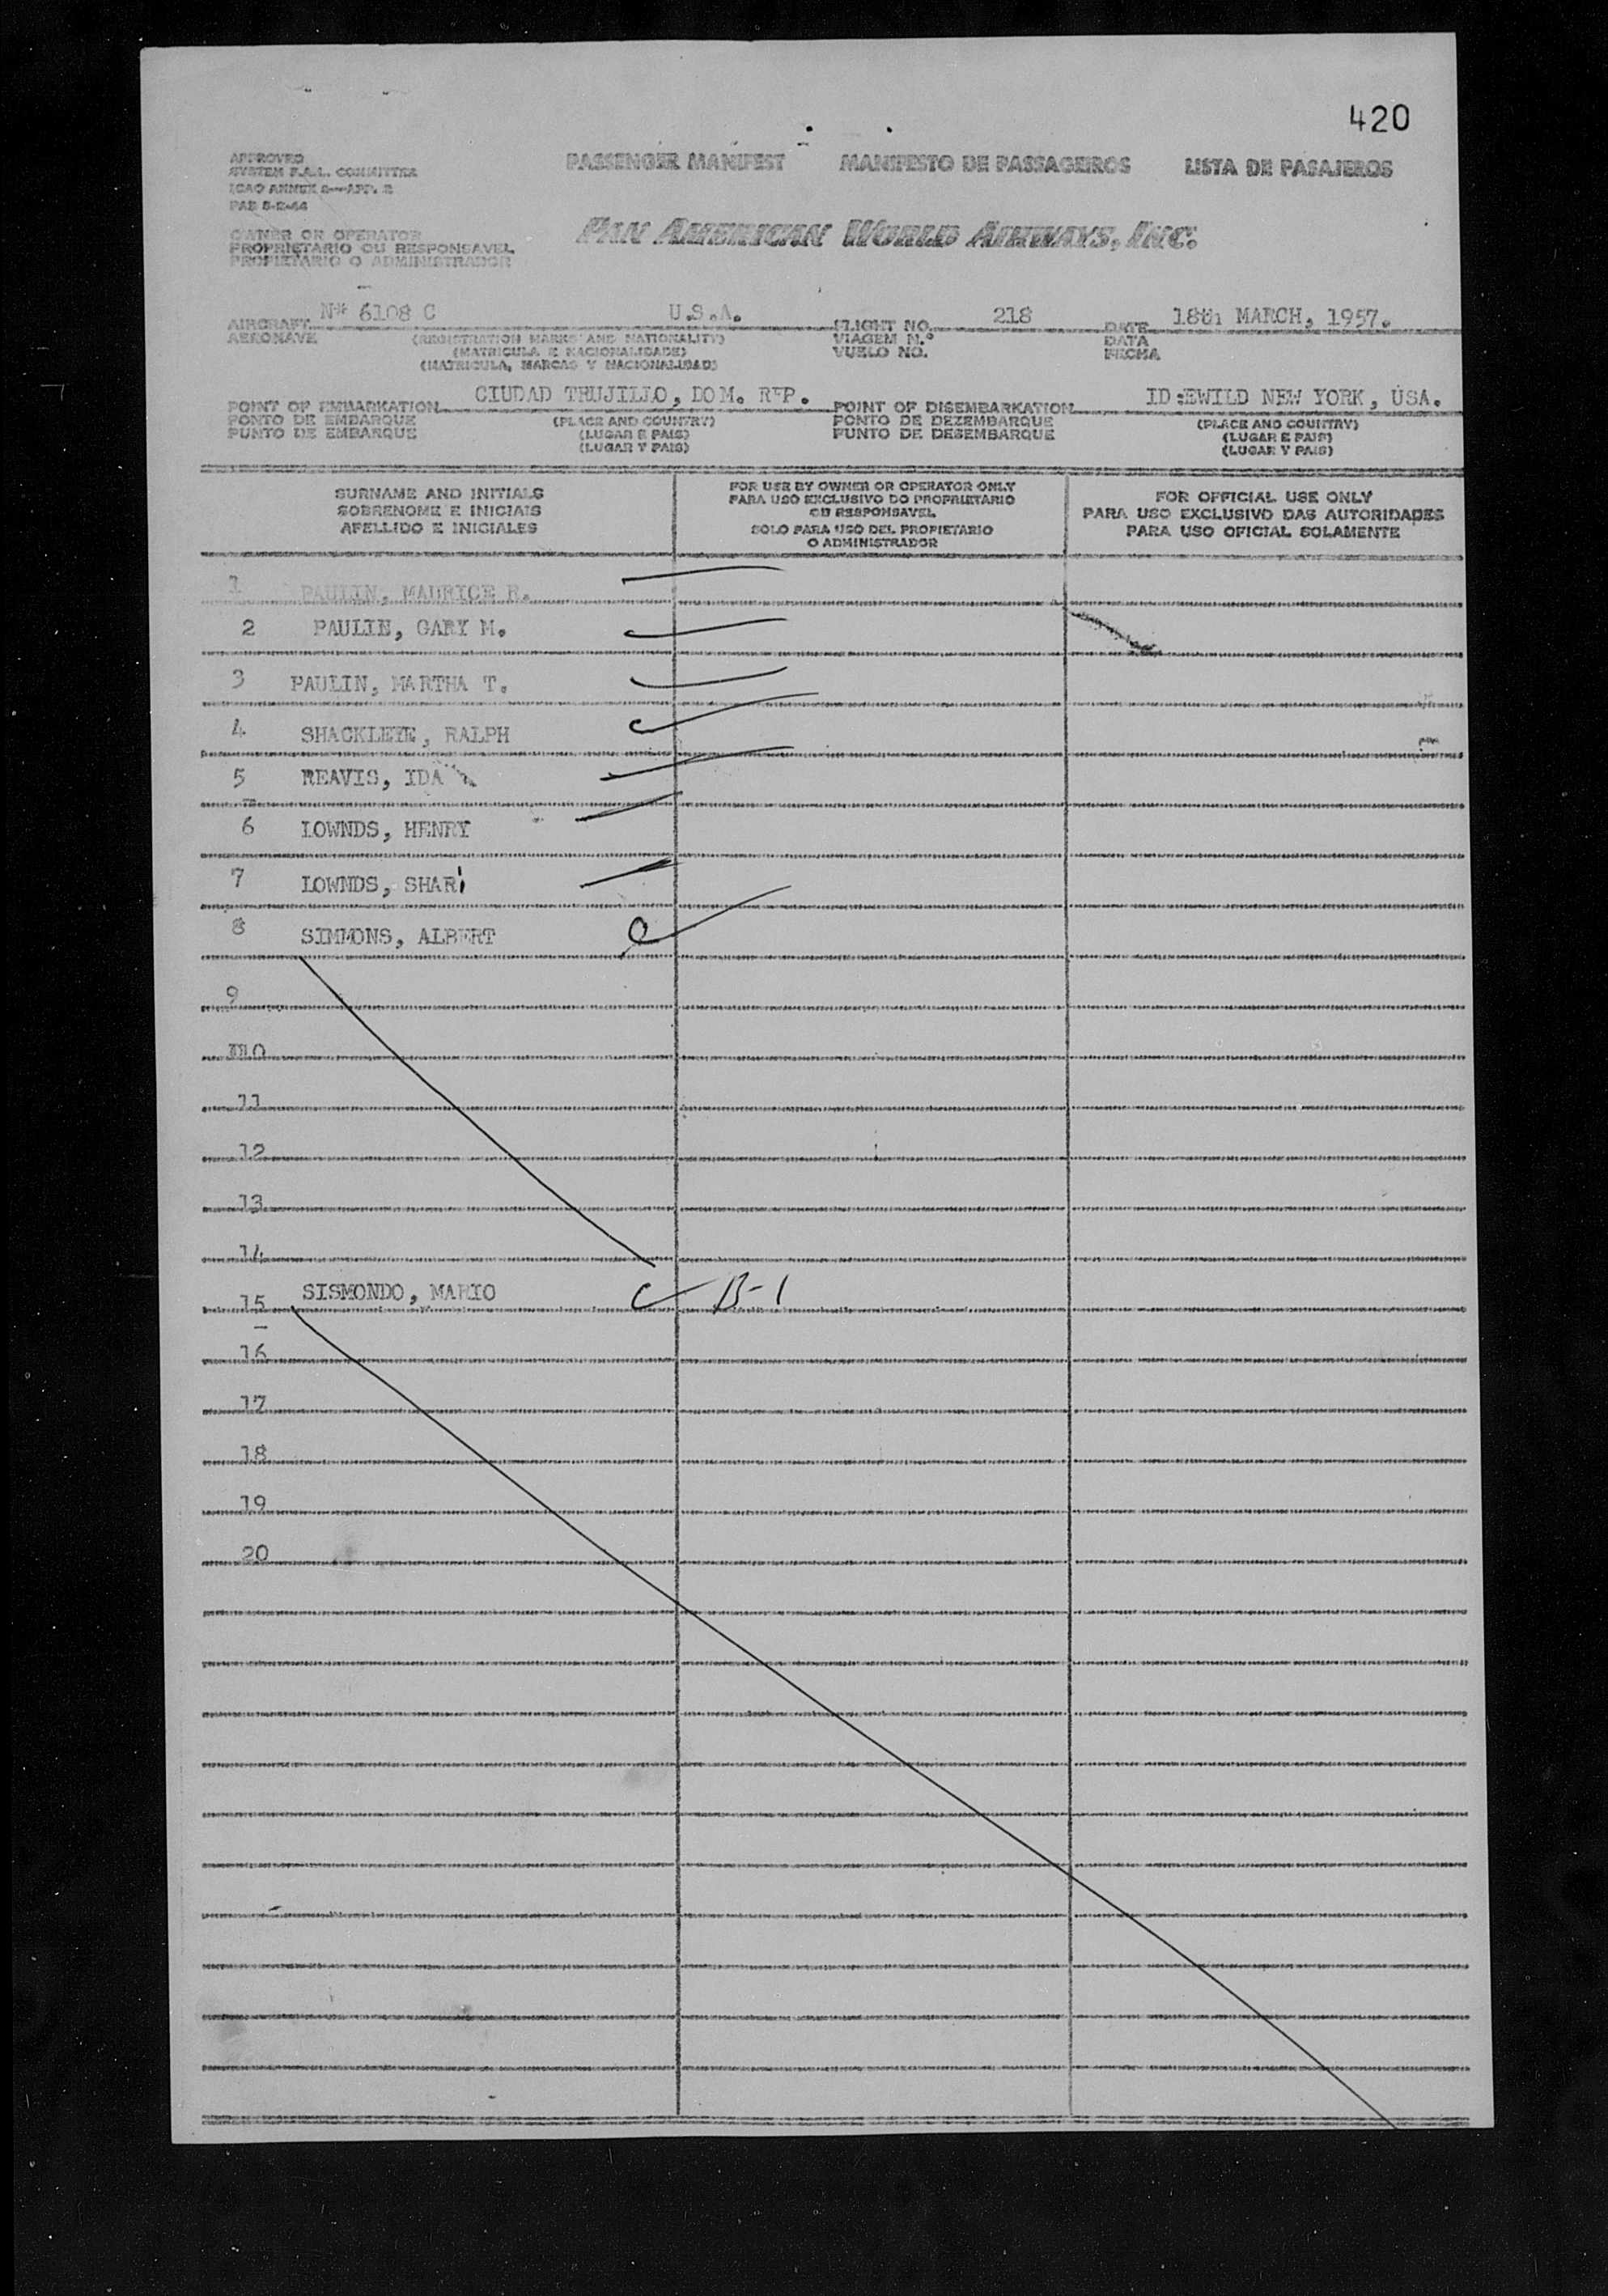 420
APPROVED
SYSTEM F.A.L. COMMITTEE
ICAO ANNEX 9—APP. 2
PASSENGER MANIFEST MANIFESTO DE PASSAGEIROS LISTA DE PASAJEROS
PAN AMERICAN WORLD AIRWAYS, INC.
OWNER OR OPERATOR
PROPRIETARIO OU RESPONSAVEL
PROPIETARIO O ADMINISTRADOR
AIRCRAFT 6108 C U.S.A. FLIGHT NO. 218 DATE MARCH, 1957.
AERONAVE (REGISTRATION MARKS AND NATIONALITY) VIAGEM N.º DATA
(MATRICULA E NACIONALIDADE) VUELO NO. FECHA
(MATRICULA, MARCAS Y NACIONALIDAD)
POINT OF EMBARKATION CIUDAD TRUJILLO, DOM. REP. POINT OF DISEMBARKATION ID:EWILD NEW YORK, USA.
PONTO DE EMBARQUE (PLACE AND COUNTRY) PONTO DE DEZEMBARQUE (PLACE AND COUNTRY)
PUNTO DE EMBARQUE (LUGAR E PAIS) PUNTO DE DESEMBARQUE (LUGAR E PAIS)
(LUGAR Y PAIS) (LUGAR Y PAIS)
SURNAME AND INITIALS
SOBRENOME E INICIAIS
APELLIDO E INICIALES
FOR USE BY OWNER OR OPERATOR ONLY
PARA USO EXCLUSIVO DO PROPRIETARIO
OU RESPONSAVEL
SOLO PARA USO DEL PROPIETARIO
O ADMINISTRADOR
FOR OFFICIAL USE ONLY
PARA USO EXCLUSIVO DAS AUTORIDADES
PARA USO OFICIAL SOLAMENTE
1 PAULIN, MAURICE R.
2 PAULIN, GARY M.
3 PAULIN, MARTHA T.
4 RALPH
5 REAVIS, IDA
6 LOWNDS, HENRY
7 LOWNDS, SHARI
8 SIMMONS, ALBERT
9
10
11
12
13
14
15 SISMONDO, MARIO B-1
16
17
18
19
20